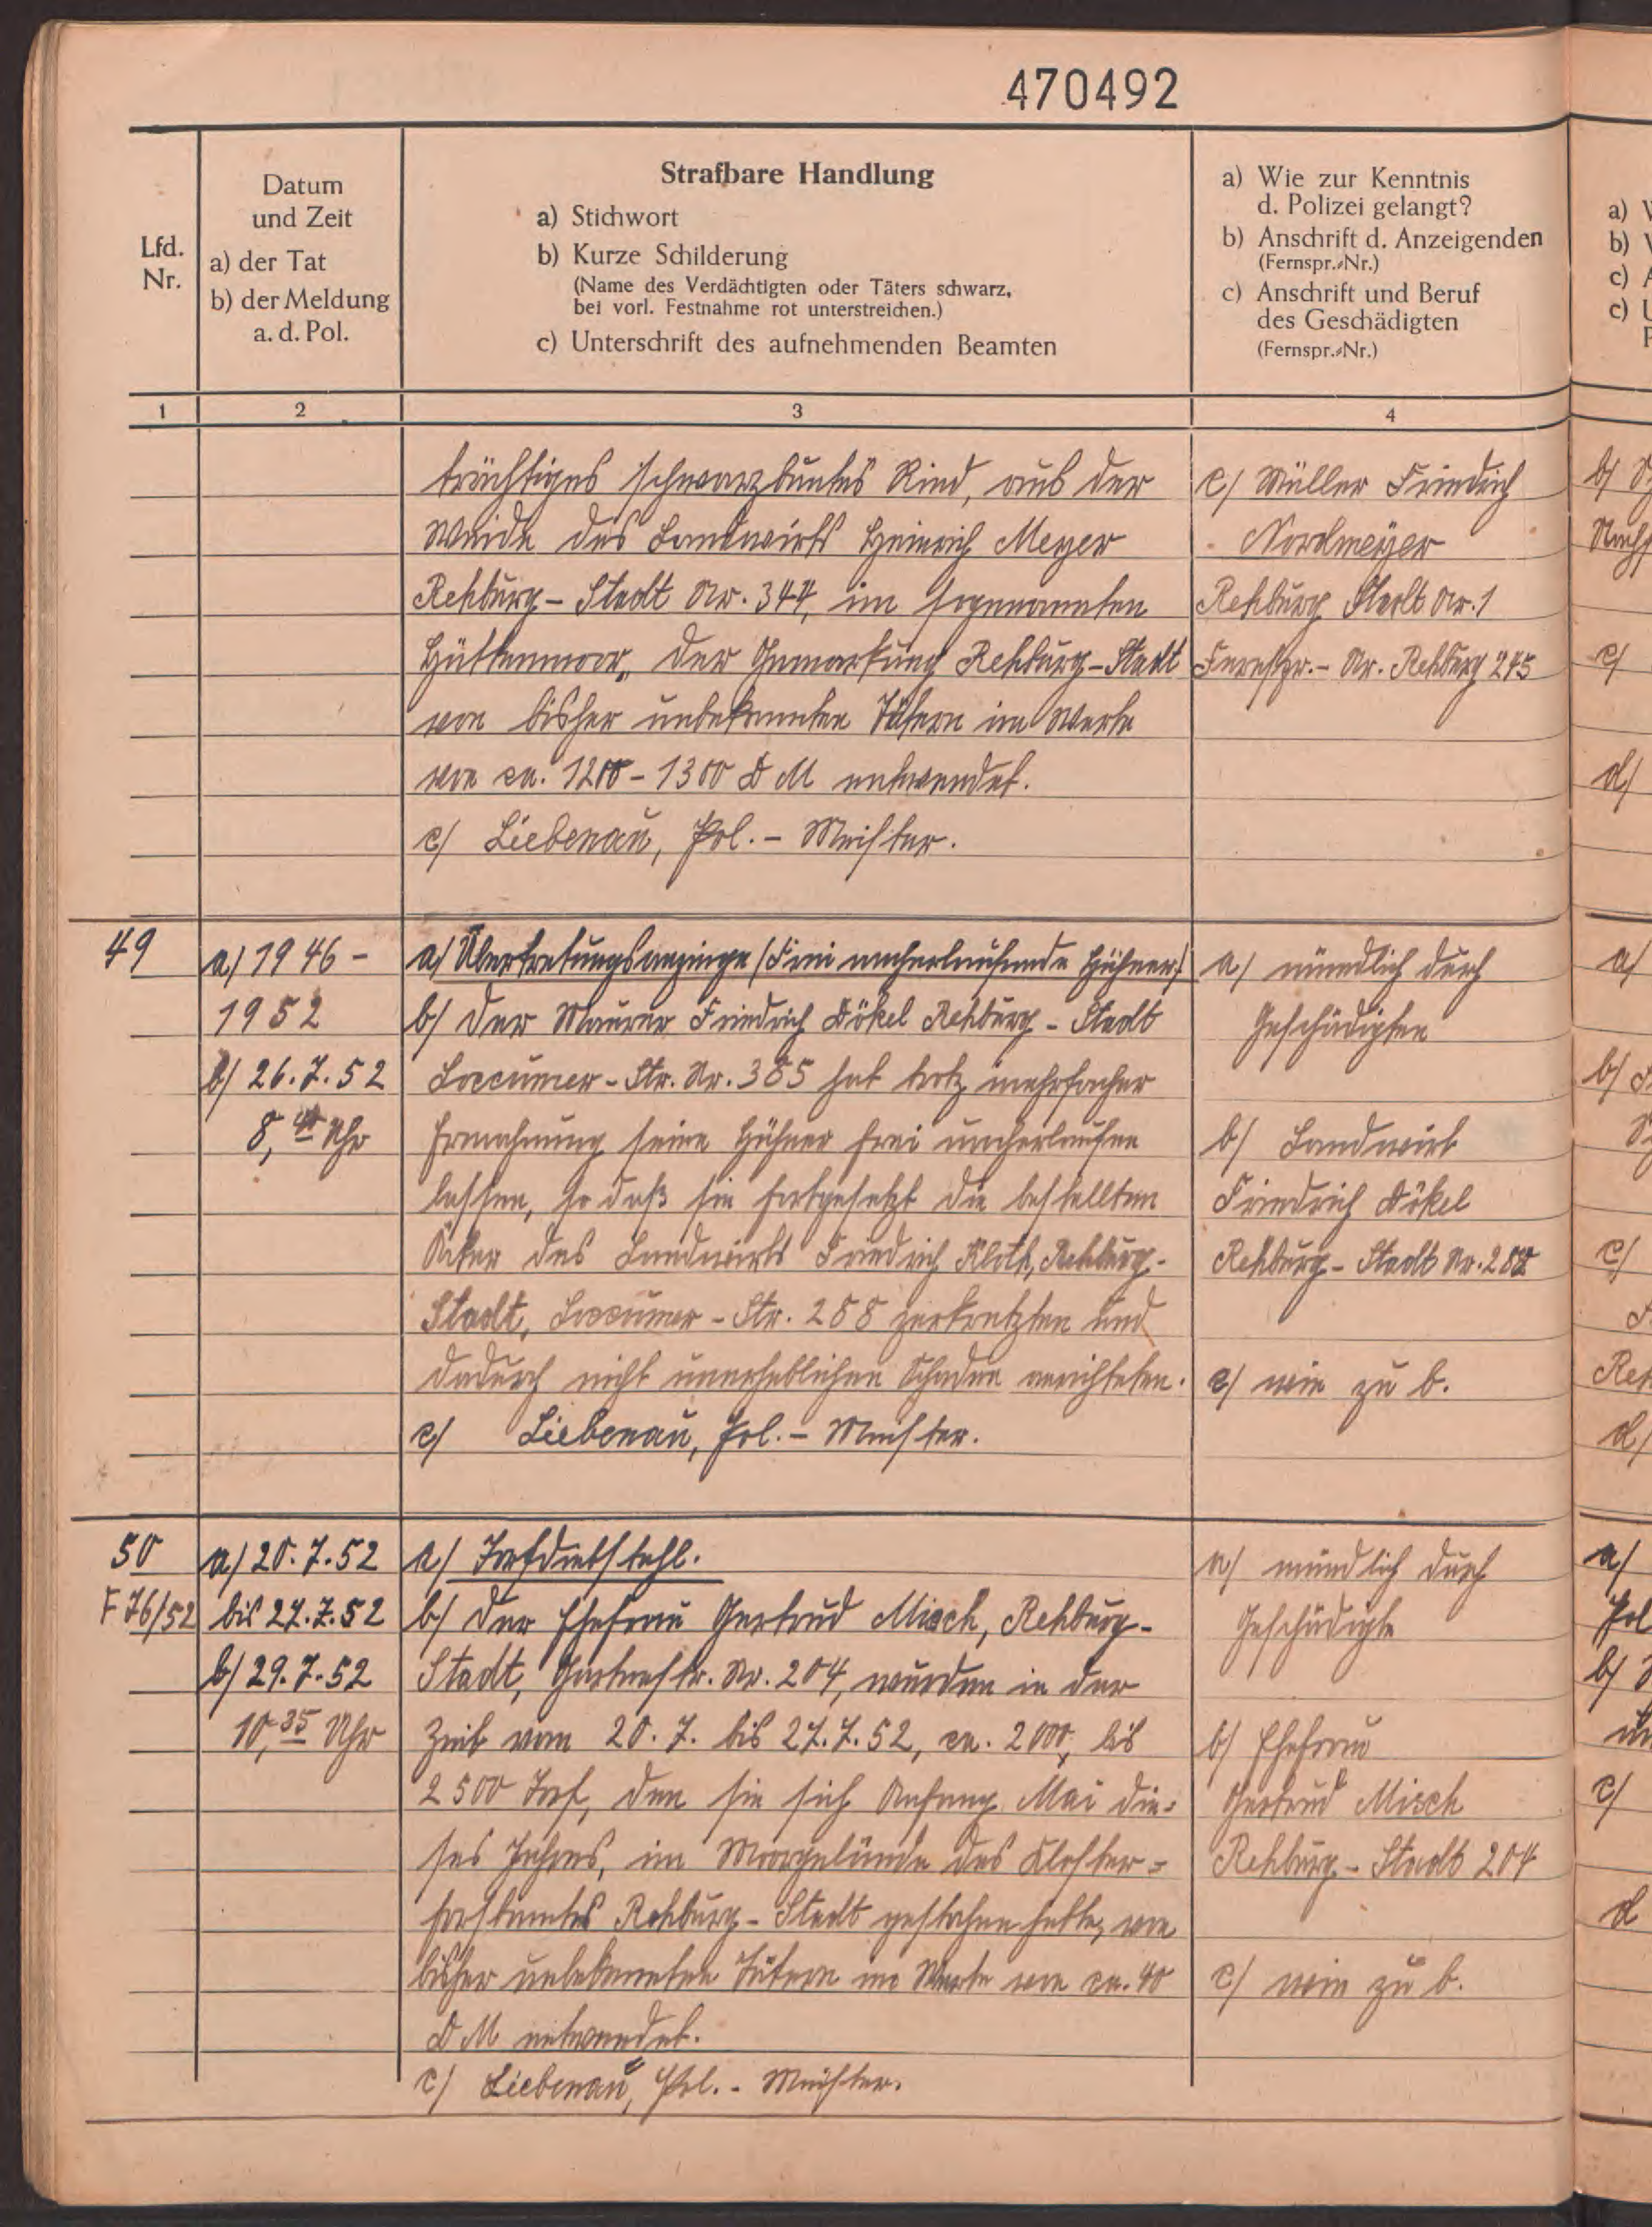 470492
Lfd.
Nr.
Datum
und Zeit
a) der Tat
b) der Meldung
a. d. Pol.
Strafbare Handlung
a) Stichwort
b) Kurze Schilderung
(Name des Verdächtigten oder Täters schwarz,
bei vorl. Festnahme rot unterstreichen.)
c) Unterschrift des aufnehmenden Beamten
a) Wie zur Kenntnis
d. Polizei gelangt?
b) Anschrift d. Anzeigenden
(Fernspr.-Nr.)
c) Anschrift und Beruf
des Geschädigten
(Fernspr.-Nr.)
1 2 3 4
trächtiges schwarzbuntes Rind, aus der
Weide des Landwirts Heinrich Meyer
Rehburg-Stadt Nr. 344, im sogenannten
Hüttenmoor, der Gemarkung Rehburg-Stadt
von bisher unbekannten Tätern im Werte
von ca. 1200 - 1300 DM entwendet.
c/ Liebenau, Pol.- Meister.
c/ Müller Friedrich
Nordmeyer
Rehburg Stadt Nr. 1
Fernspr.- Nr. Rehburg 245
49
a/ 1946 -
1952
b/ 26.7.52
8,40 Uhr
a/ Übertretungsanzeige (Frei umherlaufende Hühner)
b/ Der Maurer Friedrich Dökel Rehburg-Stadt
Loccumer-Str. Nr. 385 hat trotz mehrfacher
Ermahnung seine Hühner frei umherlaufen
lassen, so daß sie fortgesetzt die bestellten
Äcker des Landwirts Friedrich Kloth, Rehburg-
Stadt, Loccumer-Str. 288 zerkratzten und
dadurch nicht unerheblichen Schaden anrichteten.
c/ Liebenau, Pol.- Meister.
a/ mündlich durch
Geschädigten
b/ Landwirt
Friedrich Dökel
Rehburg-Stadt Nr. 288
c/ wie zu b.
50
F 76/52
a/ 20.7.52
bis 27.7.52
b/ 29.7.52
10,35 Uhr
a/ Torfdiebstahl.
b/ Der Ehefrau Gertrud Misch, Rehburg-
Stadt, Gartenstr. Nr. 204, wurden in der
Zeit vom 20.7. bis 27.7.52, ca. 2000, bis
2500 Torf, den sie sich Anfang Mai die=
ses Jahres, im Moorgelände des Kloster=
forstamtes Rehburg-Stadt gestochen hatte, von
bisher unbekannten Tätern im Werte von ca. 40
DM entwendet.
c/ Liebenau, Pol.- Meister.
a/ mündlich durch
Geschädigte
b/ Ehefrau
Gertrud Misch
Rehburg-Stadt 204
c/ wie zu b.